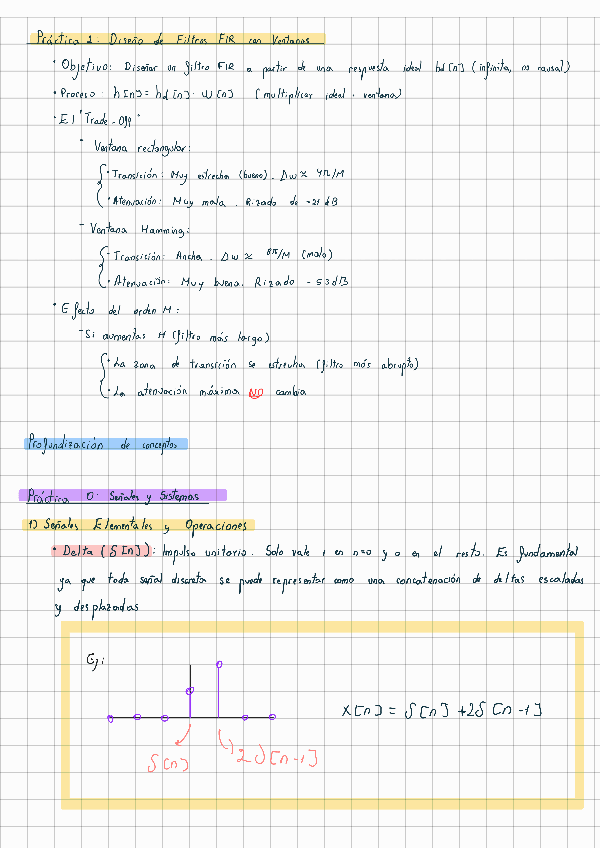 Práctica 2. Diseño de Filtros FIR con Ventanas
· Objetivo: Diseñar un filtro FIR a partir de una respuesta ideal hd[n] (infinita, no causal)
· Proceso: h[n] = hd[n] · w[n] (multiplicar ideal · ventana)
· El "Trade-Off"
- Ventana rectangular:
· Transición: Muy estrecha (bueno). Δw ≈ 4π/M
· Atenuación: Muy mala. Rizado de -21 dB
- Ventana Hamming:
· Transición: Ancha. Δw ≈ 8π/M (malo)
· Atenuación: Muy buena. Rizado -53dB
· Efecto del orden M:
- Si aumentas M (filtro más largo)
· La zona de transición se estrecha (filtro más abrupto)
· La atenuación máxima NO cambia
Profundización de conceptos
Práctica 0: Señales y Sistemas
1) Señales Elementales y Operaciones
· Delta (δ[n]): Impulso unitario. Solo vale 1 en n=0 y 0 en el resto. Es fundamental
ya que toda señal discreta se puede representar como una concatenación de deltas escaladas
y desplazadas
Ej:
x[n] = δ[n] + 2δ[n-1]
δ[n]
2δ[n-1]